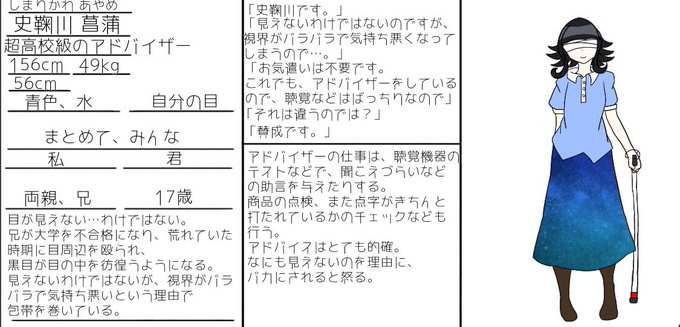 しまりかわ あやめ
史鞠川 菖蒲
超高校級のアドバイザー
156cm 49kg
56cm
青色、水 自分の目
まとめて、みんな
私 君
両親、兄 17歳
目が見えない…わけではない。
兄が大学を不合格になり、荒れていた
時期に目周辺を殴られ、
黒目が目の中を彷徨うようになる。
見えないわけではないが、視界がバラ
バラで気持ち悪いという理由で
包帯を巻いている。
「史鞠川です。」
「見えないわけではないのですが、
視界がバラバラで気持ち悪くなって
しまうので…。」
「お気遣いは不要です。
これでも、アドバイザーをしている
ので、聴覚などはばっちりなので」
「それは違うのでは？」
「賛成です。」
アドバイザーの仕事は、聴覚機器の
テストなどで、聞こえづらいなど
の助言を与えたりする。
商品の点検、また点字がきちんと
打たれているかのチェックなども
行う。
アドバイスはとても的確。
なにも見えないのを理由に、
バカにされると怒る。